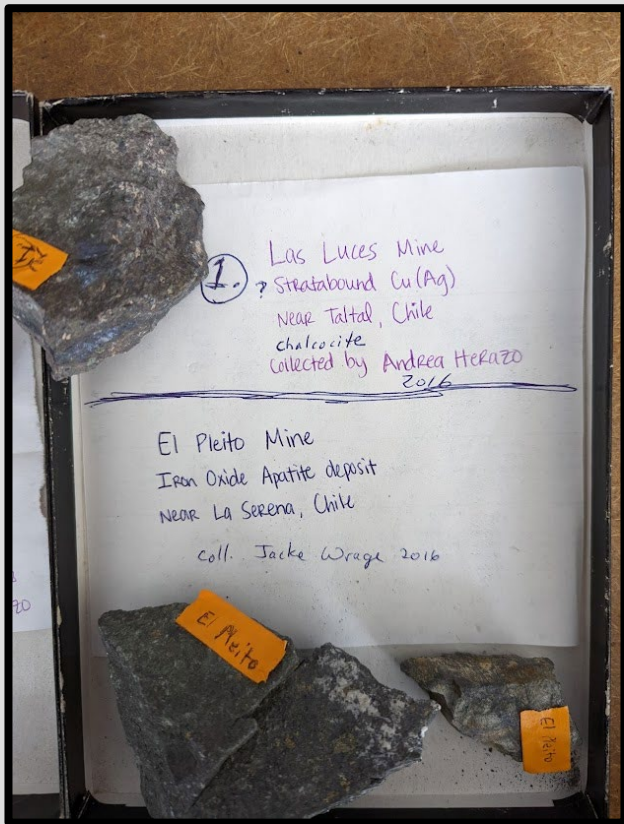 1.
Las Luces Mine
? Stratabound Cu(Ag)
Near Taltal, Chile
chalcocite
Collected by Andrea Herazo
2016
El Pleito Mine
Iron Oxide Apatite deposit
Near La Serena, Chile
coll. Jacke Wrage 2016
El Pleito
El Pleito
20